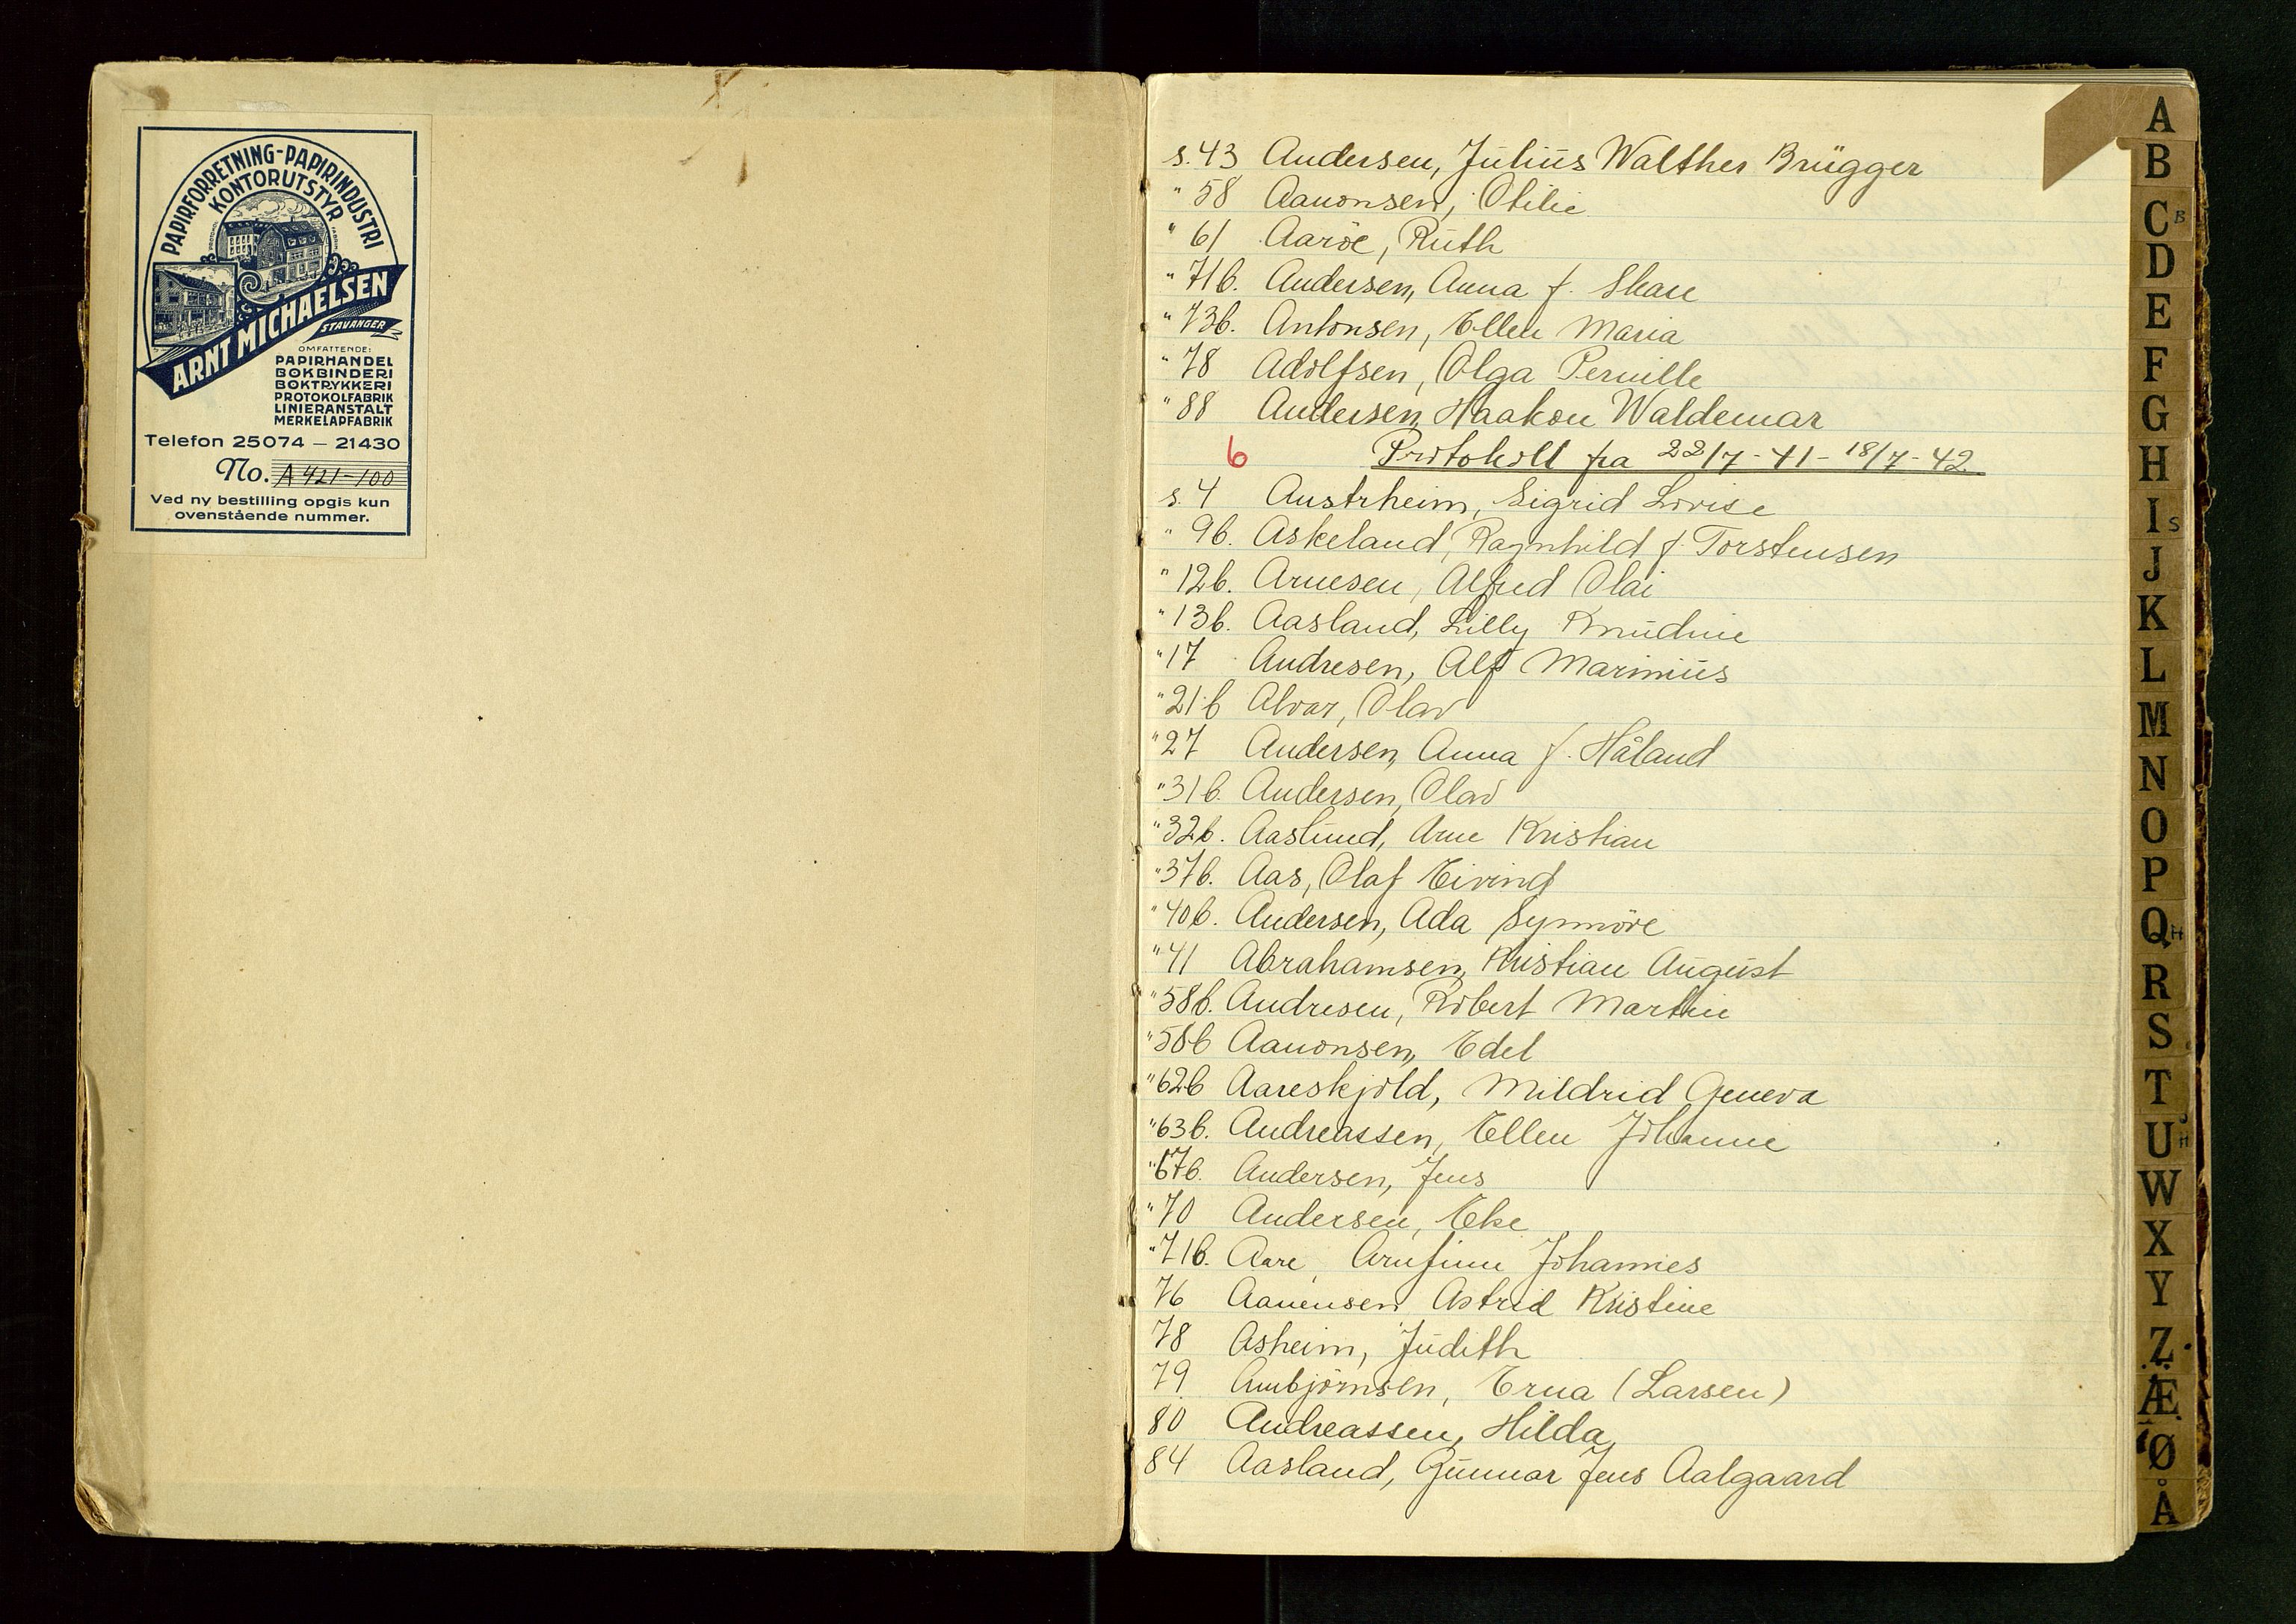 PAPIRFORRETNING-PAPIRINDUSTRI
KONTORUTSTYR
ARNT MICHAELSEN
STAVANGER
OMFATTENDE:
PAPIRHANDEL
BOKBINDERI
BOKTRYKKERI
PROTOKOLFABRIK
LINIERANSTALT
MERKELAPFABRIK
Telefon 25074 – 21430
No. A 421-100
Ved ny bestilling opgis kun
ovenstående nummer.
s. 43 Andersen, Julius Walther Brügger
" 58 Aanonsen, Otilie
" 61 Aaröe, Ruth
" 71b. Andersen, Anna f. Skare
" 73b. Antonsen, Ellen Maria
" 78 Adolfsen, Olga Pernille
" 88 Andersen, Haakon Waldemar
6 Protokoll fra 22/7-41-18/7-42
s. 4 Austrheim, Sigrid Lovise
" 9b. Askeland, Ragnhild f. Torstensen
" 12b. Arnesen, Alfred Olai
" 13b. Aasland, Lilly Knudine
" 17 Andresen, Alf Marinius
" 21b Alvar, Olav
" 27 Andersen, Anna f. Håland
" 31b. Andersen, Olav
" 32b. Aaslund, Arne Kristian
" 37b. Aas, Olaf Eivind
" 40b. Andersen, Ada Synnöve
" 41 Abrahamsen, Kristian August
" 58b. Andresen, Robert Martin
" 58b Aanonsen, Edel
" 62b Aareskjold, Mildrid Geneva
" 63b. Andreassen, Ellen Johanne
" 67b. Andersen, Jens
" 70 Andersen, Eke
" 71b. Aare, Arnfinn Johannes
76 Aanensen Astrid Kristine
78 Asheim, Judith
79 Ambjörnsen, Erna (Larsen)
80 Andreassen, Hilda
84 Aasland, Gunnar Jens Aalgaard
A
B
C B
D
E
F
G
H
I S
J
K
L
M
N
O
P
Q H
R
S
T
U H
W
X
Y
Z
Æ
Ø
Å